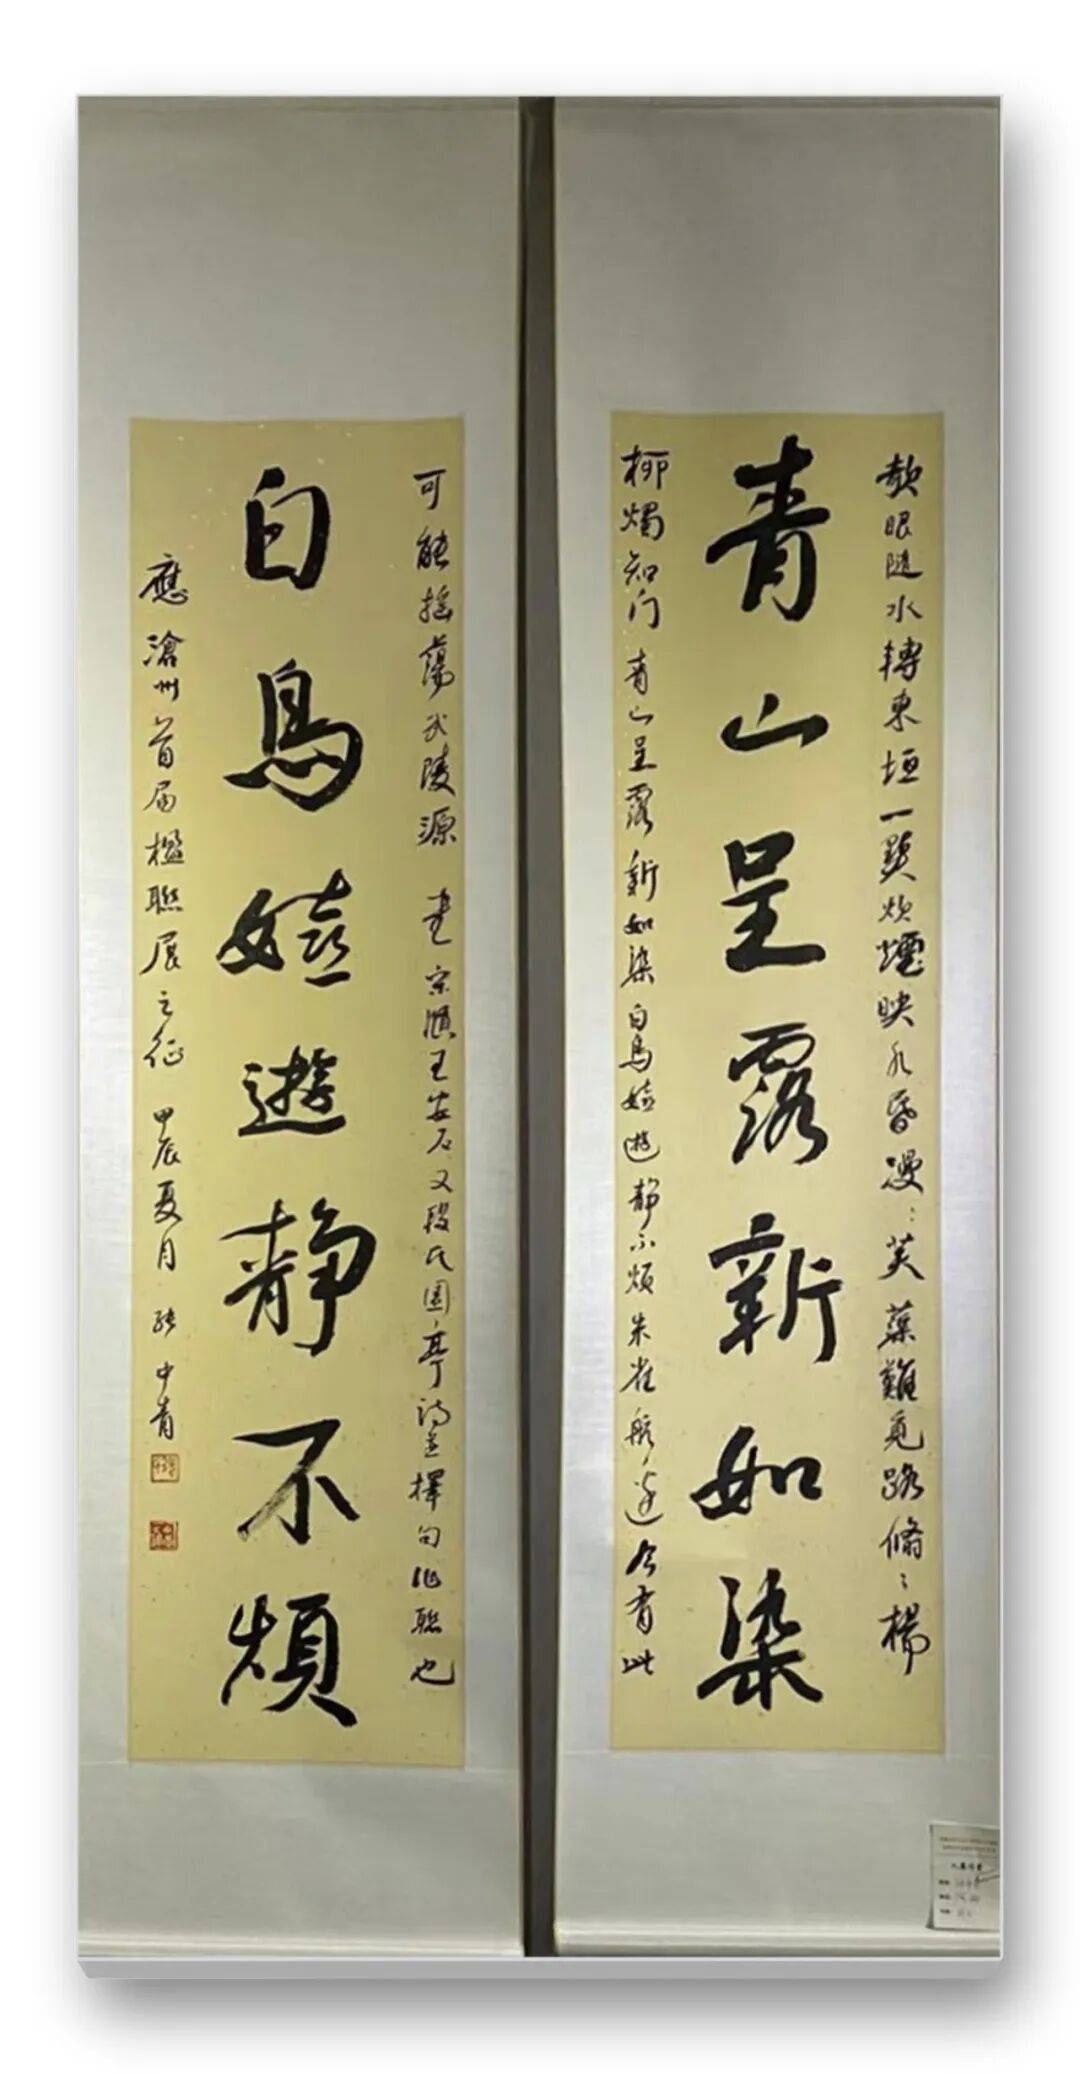 欹眠隨水轉東垣一點炊煙映水昏漫漫芙蕖難覓路翛翛楊
青山呈露新如染
柳獨知门 青山呈露新如染白鳥嬉遊靜不煩朱雀航邊今有此
可能摇蕩武陵源 書宋賢王安石又段氏園亭诗並擇句作聯也
白鳥嬉遊靜不煩
應滄州首届楹聯展之征 甲辰夏月 張中青